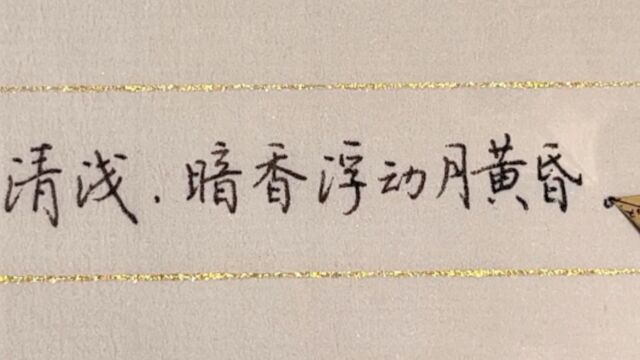 清浅.暗香浮动月黄昏